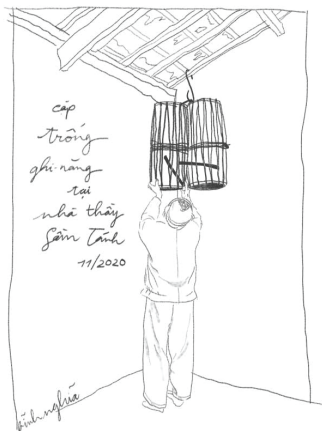 cặp
trống
ghi-năng
tại
nhà thầy
Sầm Tánh
11/2020
bĩnh nghĩa